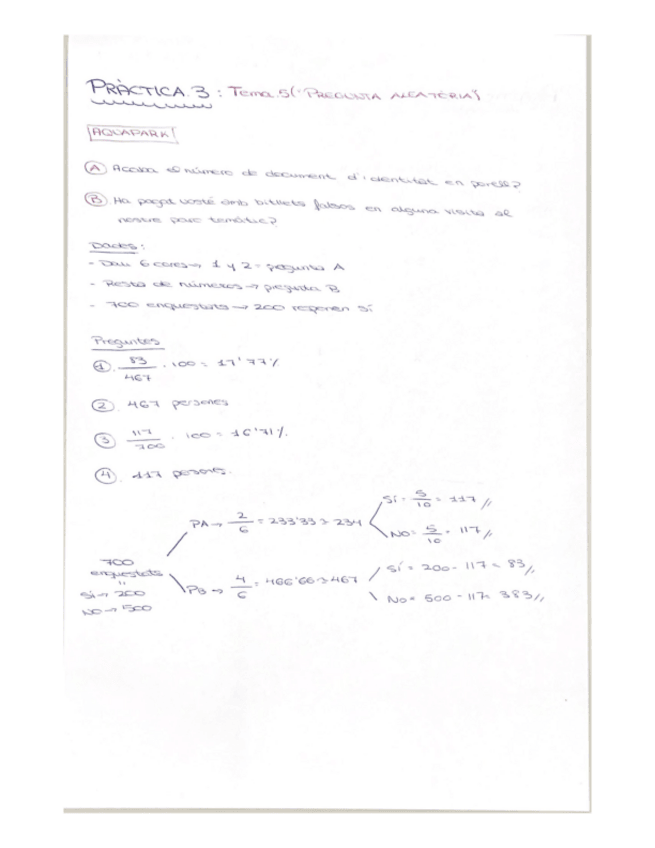 PRÀCTICA.3 : Tema.5 ("PREGUNTA ALEATÒRIA")
AQUAPARK
A Acaba el número de document d'identitat en parell?
B Ha pagat vostè amb bitllets falsos en alguna visita al
nostre parc temàtic?
Dades:
- Dau 6 cares → 1 y 2 = pregunta A
- Resta de números → pregunta B
- 700 enquestats → 200 responen sí
Preguntes
1. 83/467 · 100 = 17'77%
2. 467 persones
3 117/700 · 100 = 16'71%.
4. 117 persones.
PA → 2/6 = 233'33 > 234
Sí = 5/10 = 117 //
No = 5/10 = 117 //
700
enquestats
"
Sí → 200
NO → 500
PB → 4/6 = 466'66 > 467
Sí = 200 - 117 = 83 //
No = 500 - 117 = 383 //